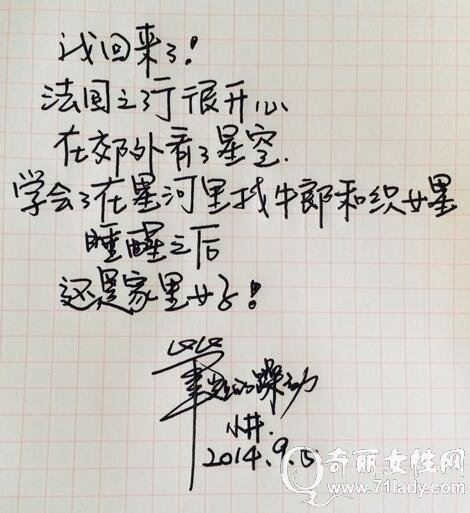 我回来了!
法国之行很开心
在郊外看了星空.
学会了在星河里找牛郎和织女星
睡醒之后
还是家里好!
的躁动
小井.
2014.9.5
奇丽女性网
www.71lady.com